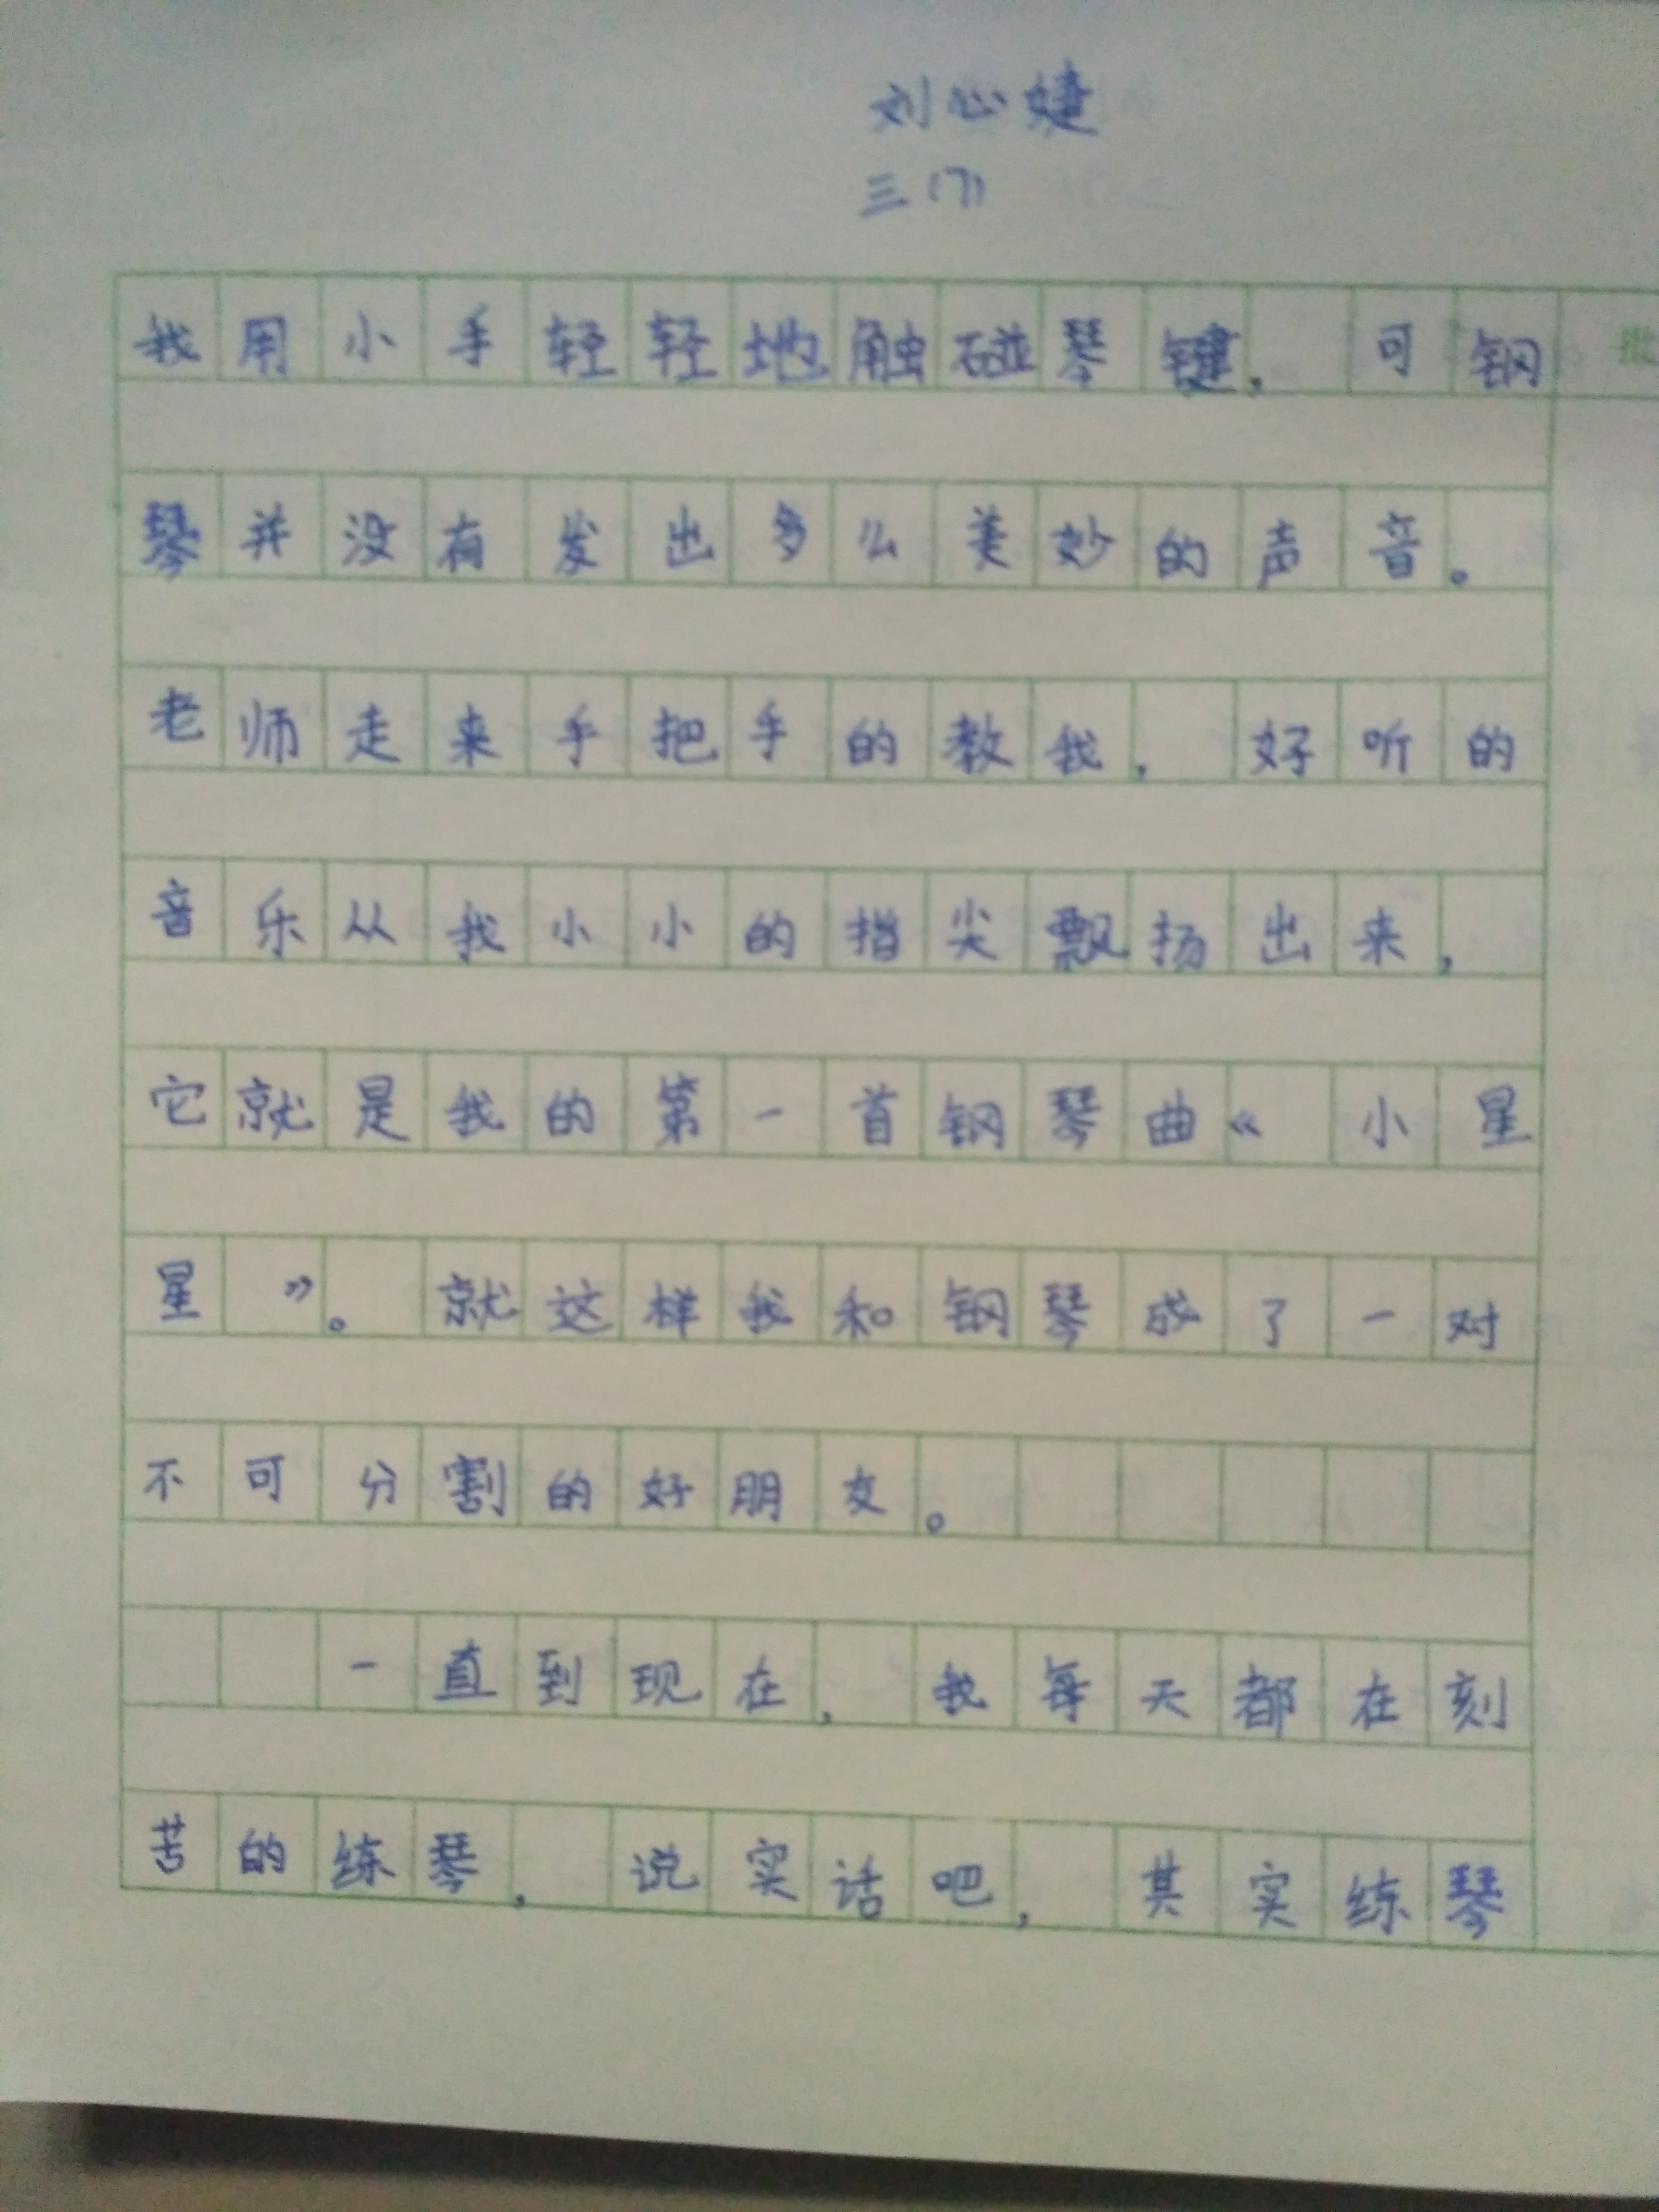 刘心婕
三(7)
我用小手轻轻地触碰琴键，可钢
批
琴并没有发出多么美妙的声音。
老师走来手把手的教我，好听的
音乐从我小小的指尖飘扬出来，
它就是我的第一首钢琴曲《小星
星》。就这样我和钢琴成了一对
不可分割的好朋友。
一直到现在，我每天都在刻
苦的练琴，说实话吧，其实练琴